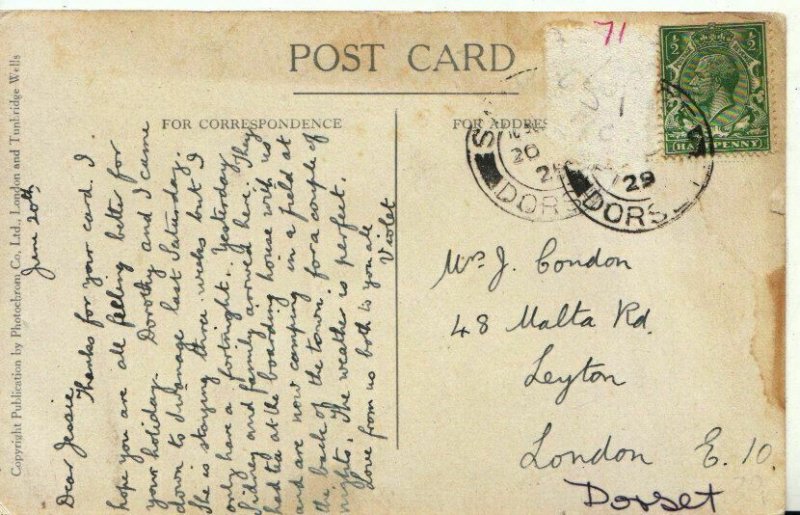 POST CARD
FOR CORRESPONDENCE
FOR ADDRESS
Copyright Publication by Photochrom Co., Ltd., London and Tunbridge Wells
June 20th
Dear Jessie
Thanks for your card. I
hope you are all felling better for
your holiday. Dorothy and I came
down to Swanage last Saturday.
She is staying three weeks but I
only have a fortnight. Yesterday
Sidney and family arrived here. They
had tea at the boarding house with us
and are now camping in a field at
the back of the town, for a couple of
nights. The weather is perfect.
Love from us both to you all
Violet
71
½
½
HALFPENNY
20
DORS
29
DORS
Mrs J. Condon
48 Malta Rd.
Leyton
London E. 10.
Dorset